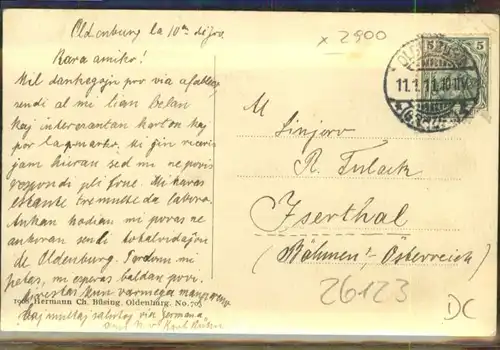 Oldenburg la 10an de jan.
Kara amiko!
Mil dankegojn por via afable
sendi al mi tian belan
kaj interesantan karton kaj
por la marko. Mi ĝin ricevis
jam hieraŭ sed mi ne povis
respondi pli frue. Mi havas
tre multe da laboro.
Ankaŭ hodiaŭ mi povas ne
ankoraŭ sendi
de Oldenburg. Pardonu mi
petas, mi esperas baldaŭ povi.
kun varmega
Kaj multaj salutoj via germana
Hermann Ch. Büsing, Oldenburg. No. 70
x 2900
5
OLDENBURG
11.1.11. 10-11V.
M
Sinjoro
R. Tulach
Iserthal
(Böhmen - Österreich)
26123
DC